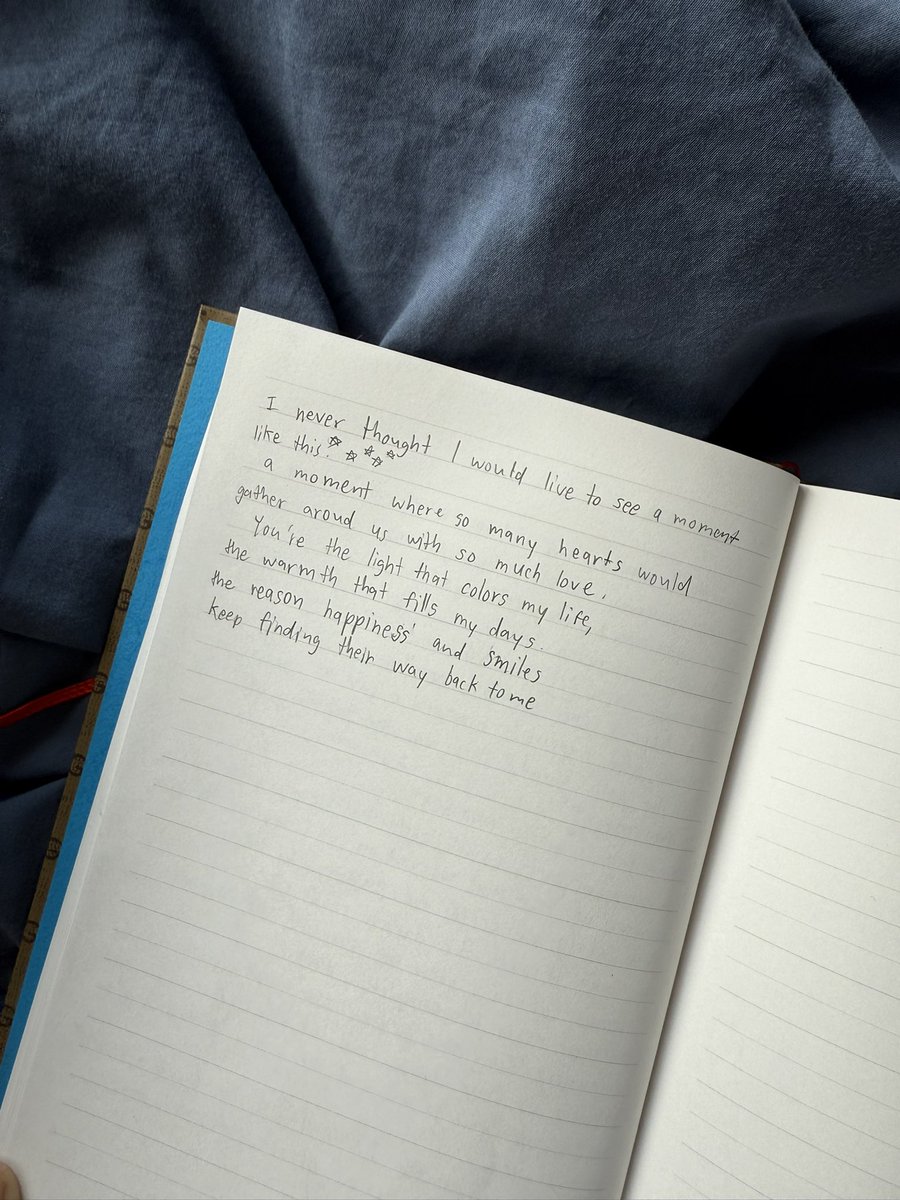 I never thought I would live to see a moment
like this.
a moment where so many hearts would
gather aroud us with so much love.
You're the light that colors my life,
the warmth that fills my days.
the reason happiness and smiles
keep finding their way back to me